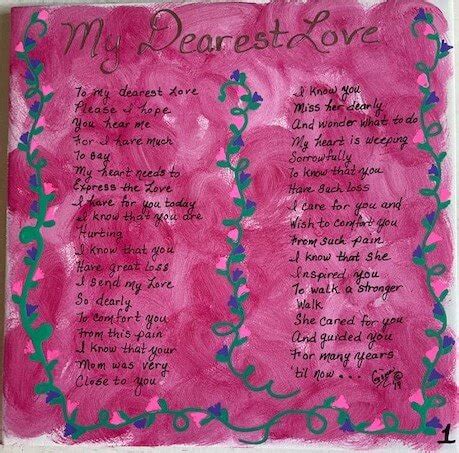 My Dearest Love
To my dearest Love
Please I hope
You hear me
For I have much
To Say
My heart needs to
Express the Love
I have for you today
I know that you are
Hurting
I know that you
Have great loss
I send my Love
So dearly
To comfort you
From this pain
I know that your
Mom was very
Close to you
I know you
Miss her dearly
And wonder what to do
My heart is weeping
Sorrowfully
To know that you
Have Such loss
I care for you and
Wish to comfort you
From such pain
I know that she
Inspired you
To walk a stronger
Walk
She cared for you
And guided you
For many years
'til now...
1